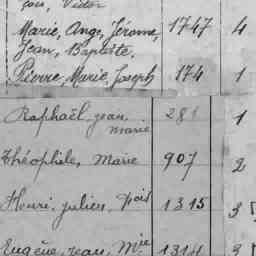 çois, Victor
Marie, Ange, Jérome, 1747 4
Jean, Baptiste.
Pierre, Marie, Joseph 174 1
Raphaël, jean 281 1
marie
Théophile, Marie 907 2
Henri, julien, fois 1315 3
Eugène, jean, Mie 1314 3